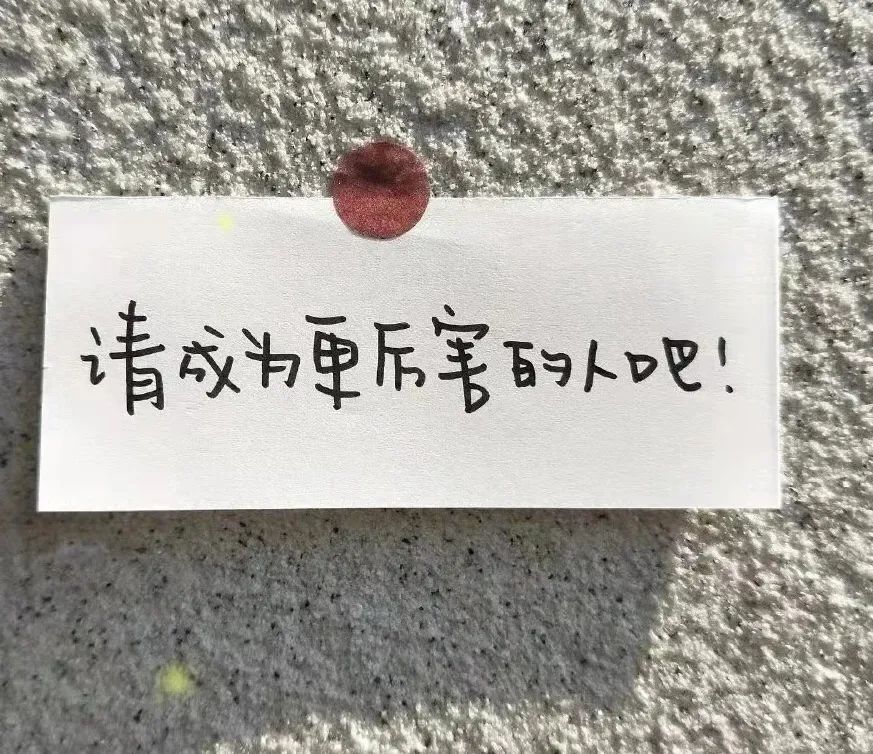 请成为更厉害的人吧！